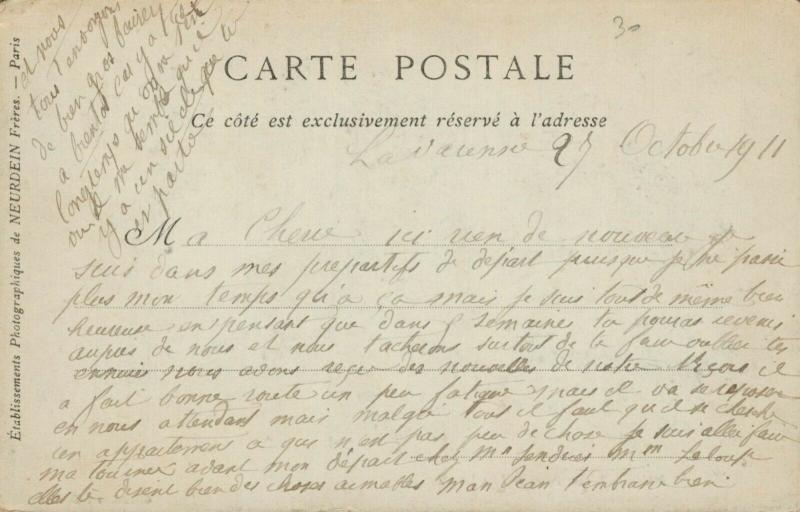 CARTE POSTALE
Ce côté est exclusivement réservé à l'adresse
La Varenne 27 Octobre 1911
Ma Cherie ici rien de nouveau je
suis dans mes prepartifs de départ puisque je ne passe
plus mon temps qu'a ca mais je suis tout de même bien
heureuse en pensant que dans 5 semaines tu pouras revenir
aupres de nous et nous tacherons surtout de te faire oublier tes
ennuis nous avons reçu des nouvelles de notre il
a fait bonne route un peu fatigue mais il va se reposer
en nous atendant mais malgre tout il faut qu'il se cherche
un appartement a qui n'est pas peu de chose je suis aller faire
ma tournee avant mon départ chez Mme Mme Leloup
elles te disent bien des choses aimables Man Jean t'embrasse bien
et nous
tous t'envoyons
de bien gros baisers
a bientot car y a
longtemps qu'on ne t'a
me semble qu'il
y a un siecle que tu
es partie
Établissements Photographiques de NEURDEIN Frères. — Paris